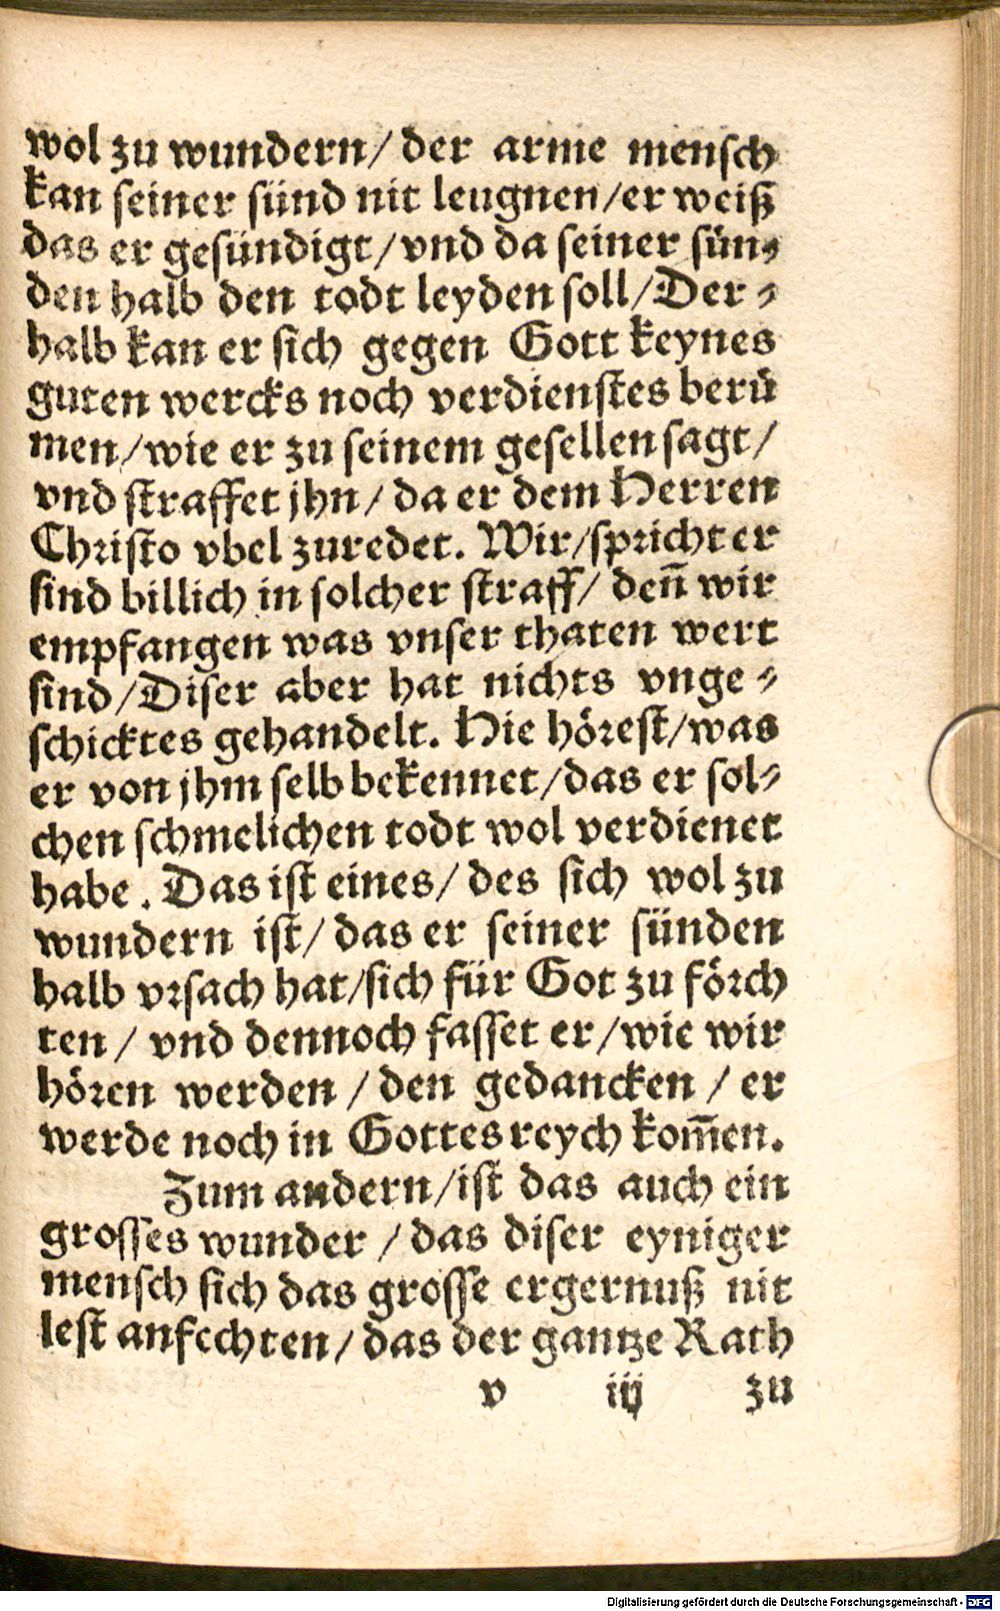 wol zu wundern/ der arme mensch
kan seiner sünd nit leugnen/er weiß
das er gesündigt/vnd da seiner sün⸗
den halb den todt leyden soll/Der⸗
halb kan er sich gegen Gott keynes
guten wercks noch verdienstes berü
men/wie er zu seinem gesellen sagt/
vnd straffet jhn/ da er dem Herren
Christo vbel zuredet. Wir/spricht er
sind billich in solcher straff/ deñ wir
empfangen was vnser thaten wert
sind/Diser aber hat nichts vnge⸗
schicktes gehandelt. Hie hörest/was
er von jhm selb bekennet/das er sol⸗
chen schmelichen todt wol verdienet
habe. Das ist eines/ des sich wol zu
wundern ist/ das er seiner sünden
halb vrsach hat/sich für Got zu förch
ten/ vnd dennoch fasset er/wie wir
hören werden/den gedancken/er
werde noch in Gottes reych kom̃en.
Zum andern/ist das auch ein
grosses wunder/das diser eyniger
mensch sich das grosse ergernuß nit
lest anfechten/das der gantze Rath
v iij zu
Digitalisierung gefördert durch die Deutsche Forschungsgemeinschaft - DFG